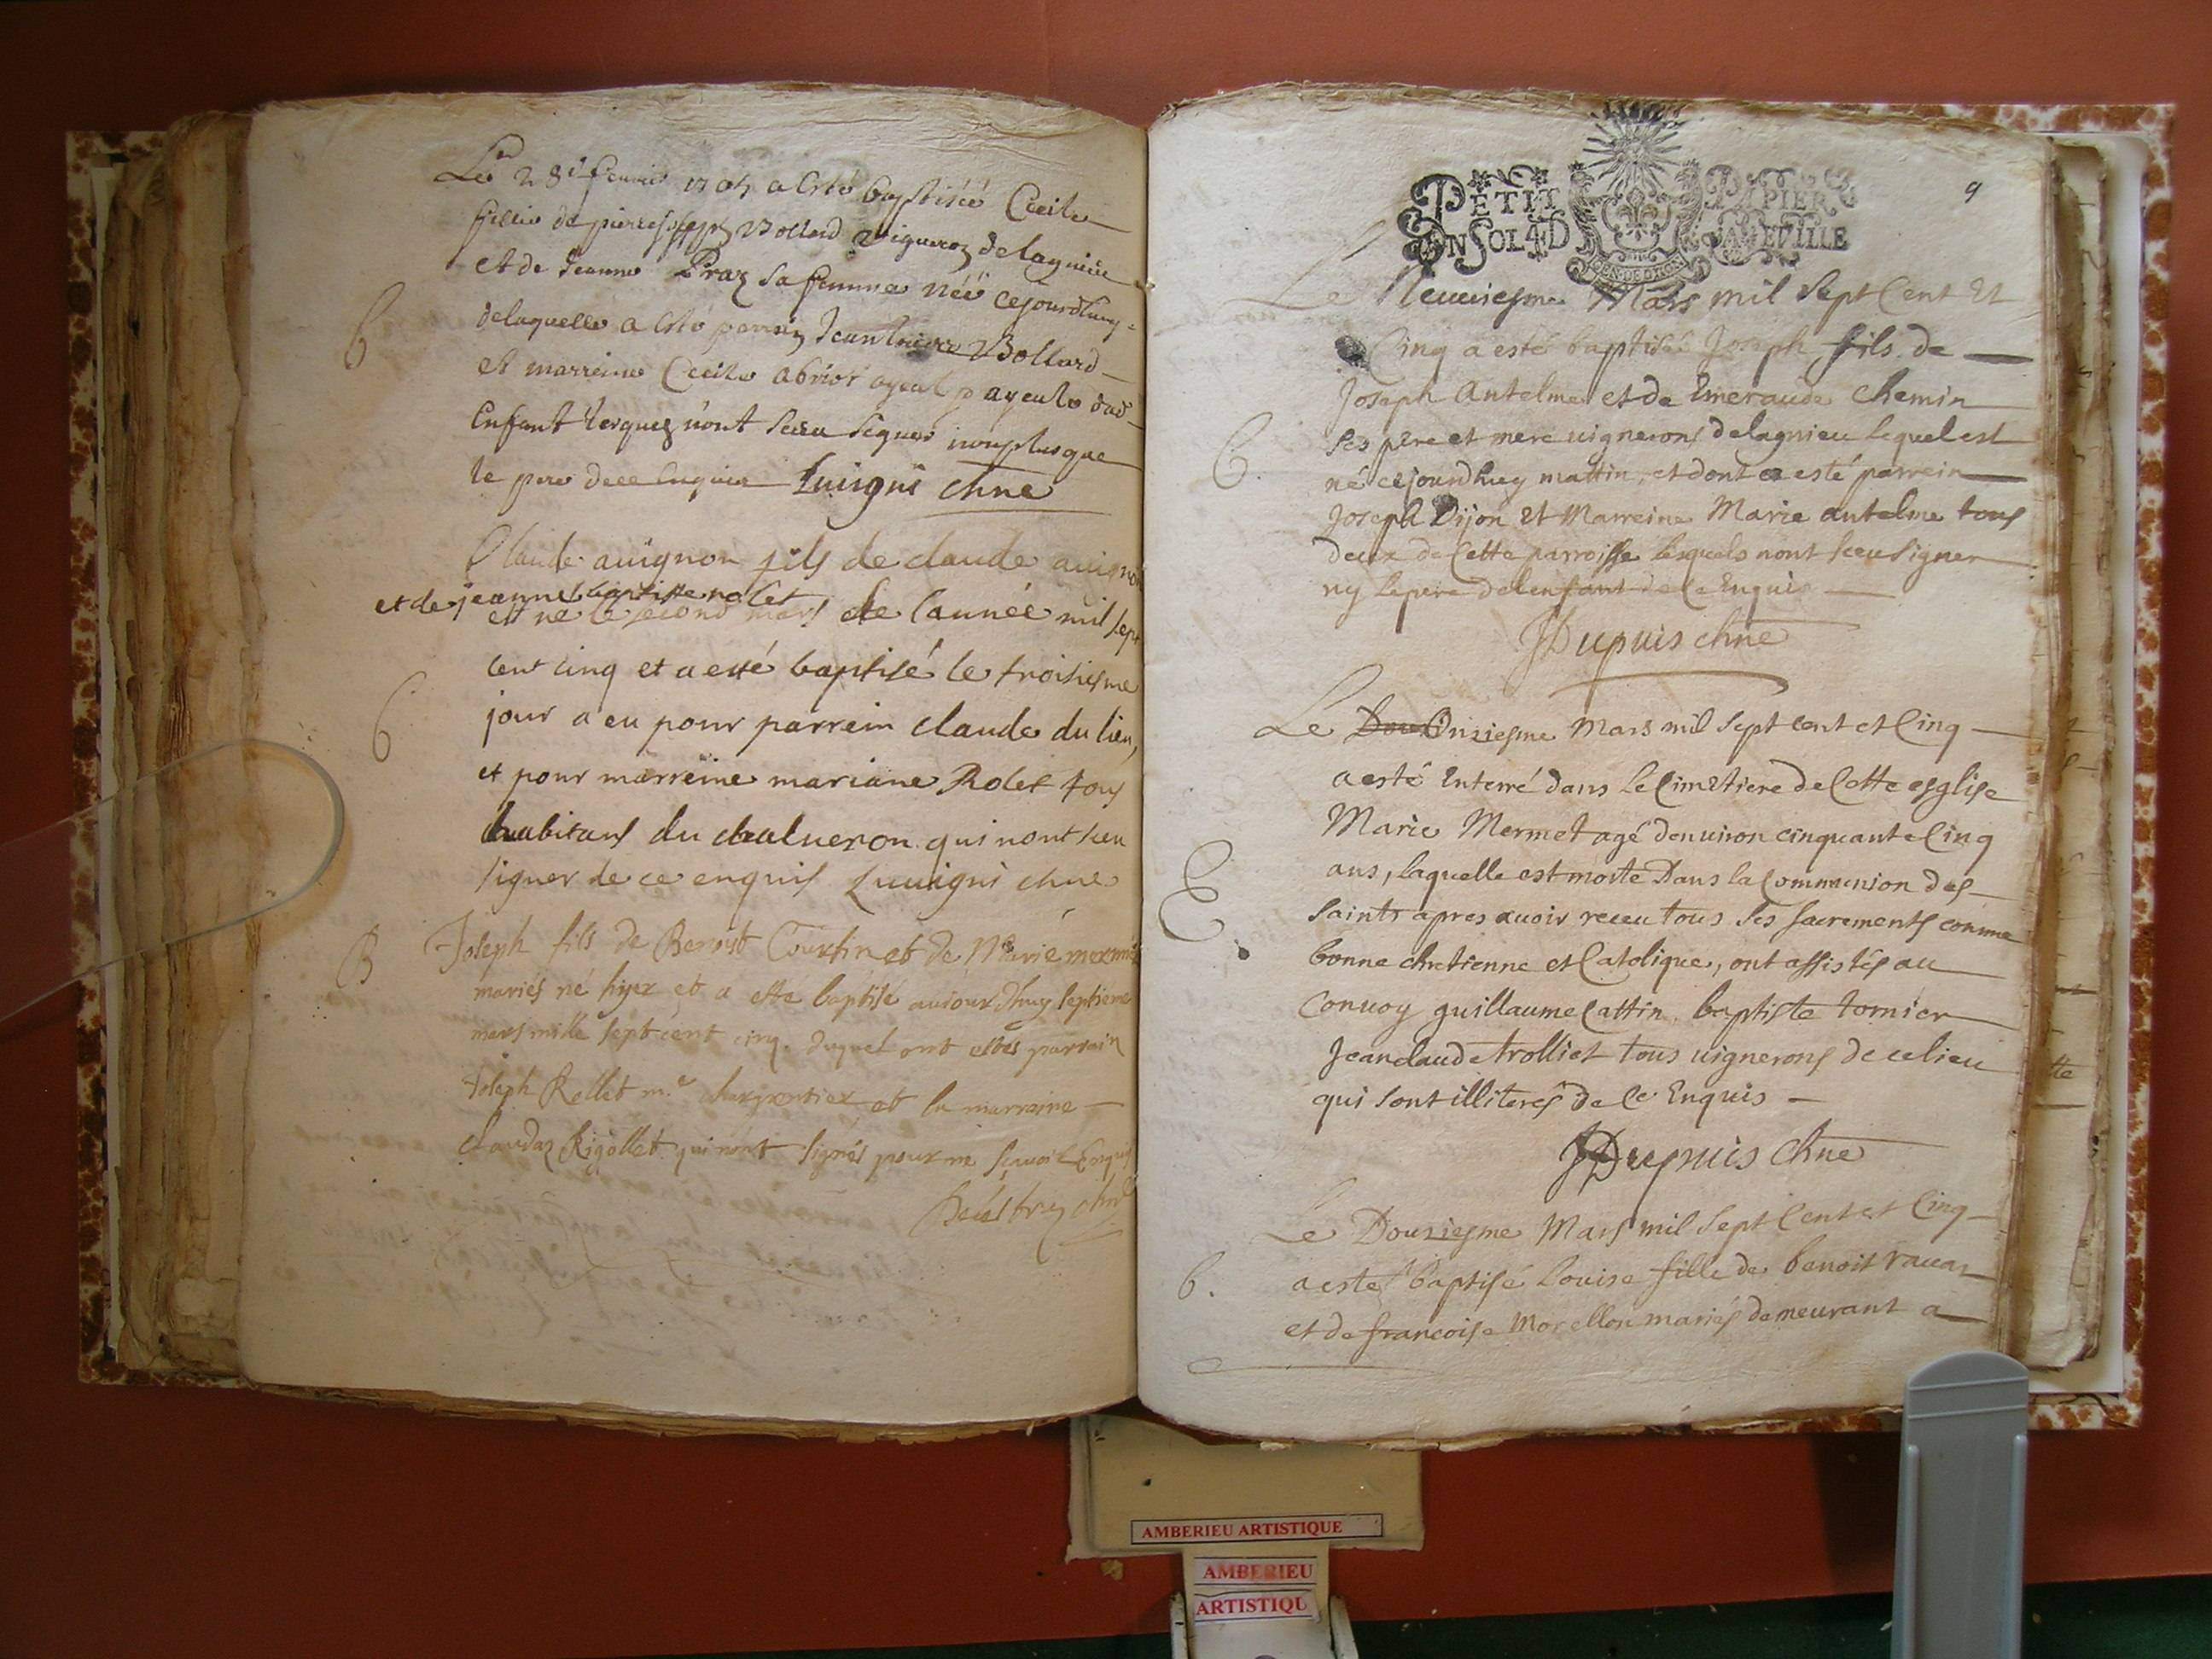 Le 28e feurier 1705 a esté baptiséé Cecile
fillie de pierre joseph Bollard vigneron de lagnieu
et de Jeanne Praz sa femme néé cejourdhuy
B
delaquelle a esté parrin Jean Bollard
et marreine Cecile abrior ayeul p ayeule dud
Enfant lesquez n'ont sceu signer nonplusque
le pere dece Enquis Luuigni chne
Claude auignon fils de claude auignon
et de jeanne baptiste nolet
est né le second mars de l'année mil sept
cent cinq et a esté baptisé le troisiesme
B
jour a eu pour parrein claude du lieu,
et pour marreine mariane Rolet tous
habitans du chalueron qui n'ont sceu
signer de ce enquis Luuigni chne
B
Joseph fils de Benoist Courtin et de Marie mermet
mariés né hyer et a esté baptisé auiourdhuy septieme
mars mille sept cent cinq. duquel ont estés parrain
Joseph Rellet m.e charpentier et la marraine
claudaz Rigollet qui n'ont signés pour ne sçavoir Enquis
chne
9
PETIT PAPIER
UN SOL 4 D LA FEUILLE
GEN DE DIION
Le Neuuiesme Mars mil Sept Cent Et
Cinq a esté baptisé Joseph fils de
Joseph Antelme et de Emeraude Chemin
B.
Ses pere et mere uignerons delagnieu lequel est
né cejourdhuy mattin, et dont a esté parrein
Joseph Dijon Et Marreine Marie antelme tous
deux de Cette parroisse lesquels nont sceu signer
ny le pere de lenfant de Ce Enquis
JDupuis chne
Le Dou Onziesme Mars mil Sept Cent et Cinq
a esté Enterré dans le Cimetiere de Cette esglise
Marie Mermet agé denuiron cinquante Cinq
E.
ans, laquelle est morte Dans la Communion des
saints apres auoir receu tous ses sacrements comme
bonne chretienne et Catolique, ont assistés au
Conuoy guillaume Cattin baptiste tornier
Jeanclaude trolliet tous uignerons de ce lieu
qui sont illiterés de Ce Enquis
JDupuis Chne
Le Douziesme Mars mil Sept Cent et Cinq
B.
a esté baptisé Louise fille de benoit rauaz
et de francoise Morellon mariés demeurant a
AMBERIEU ARTISTIQUE
AMBERIEU
ARTISTIQU